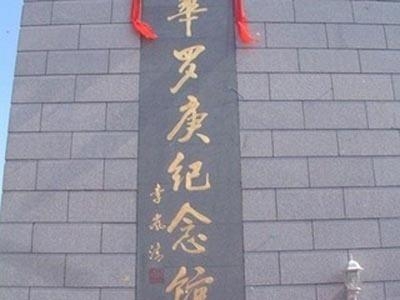 華罗庚纪念馆
李岚清